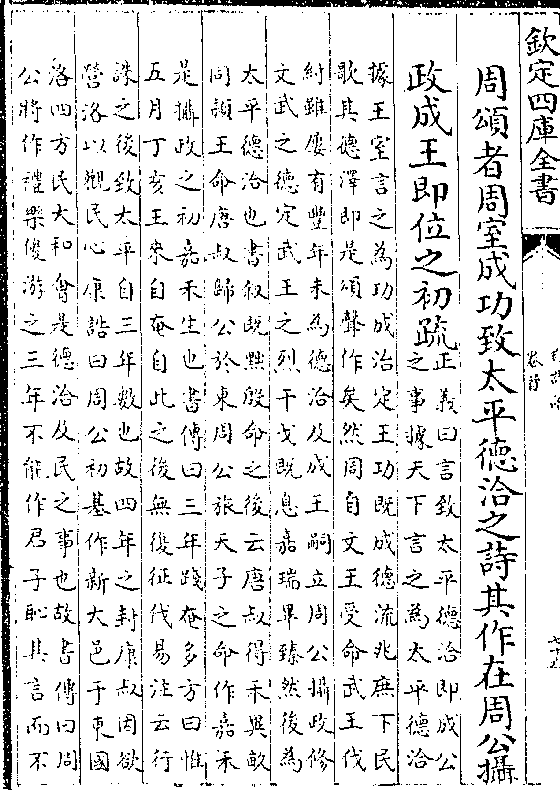 欽定四庫全書
周頌者周室成功致太平德洽之詩其作在周公攝
政成王即位之初疏
正義曰言致太平德洽即成公
之事據天下言之為太平德洽
據王室言之為功成治定王功既成德流兆庶下民
歌其德澤即是頌聲作矣然周自文王受命武王伐
紂雖屢有豐年未為德洽及成王嗣立周公攝政修
文武之德定武王之烈干戈既息嘉瑞畢臻然後為
太平德洽也書叙既黜殷命之後云唐叔得禾異畝
同頴王命唐叔歸周公於東周公旅天子之命作嘉禾
是攝政之初嘉禾生也書傳曰三年踐奄多方曰惟
五月丁亥王來自奄自此之後無復征伐易注云行
誅之後致太平自三年數也故四年之封康叔因欲
營洛以觀民心康誥曰周公初基作新大邑于東國
洛四方民大和會是德洽及民之事也故書傳曰周
公將作禮樂優游之三年不能作君子恥其言而不